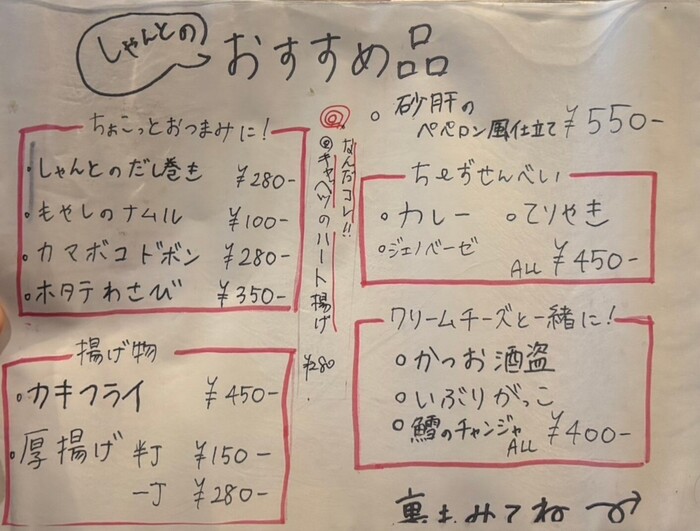 しゃんとの
おすすめ品
ちょこっとおつまみに!
・しゃんとのだし巻き ¥280-
・もやしのナムル ¥100-
・カマボコドボン ¥280-
・ホタテわさび ¥350-
揚げ物
○カキフライ ¥450-
○厚揚げ 半丁 ¥150-
一丁 ¥280-
なんだコレ!!
◎キャベツのハート揚げ
¥280
○砂肝の
ペペロン風仕立て ¥550-
ちぢせんべい
○カレー ○てりやき
○ジェノベーゼ
ALL ¥450-
クリームチーズと一緒に!
○かつお酒盗
○いぶりがっこ
○鱈のチャンジャ
ALL ¥400-
裏もみてね